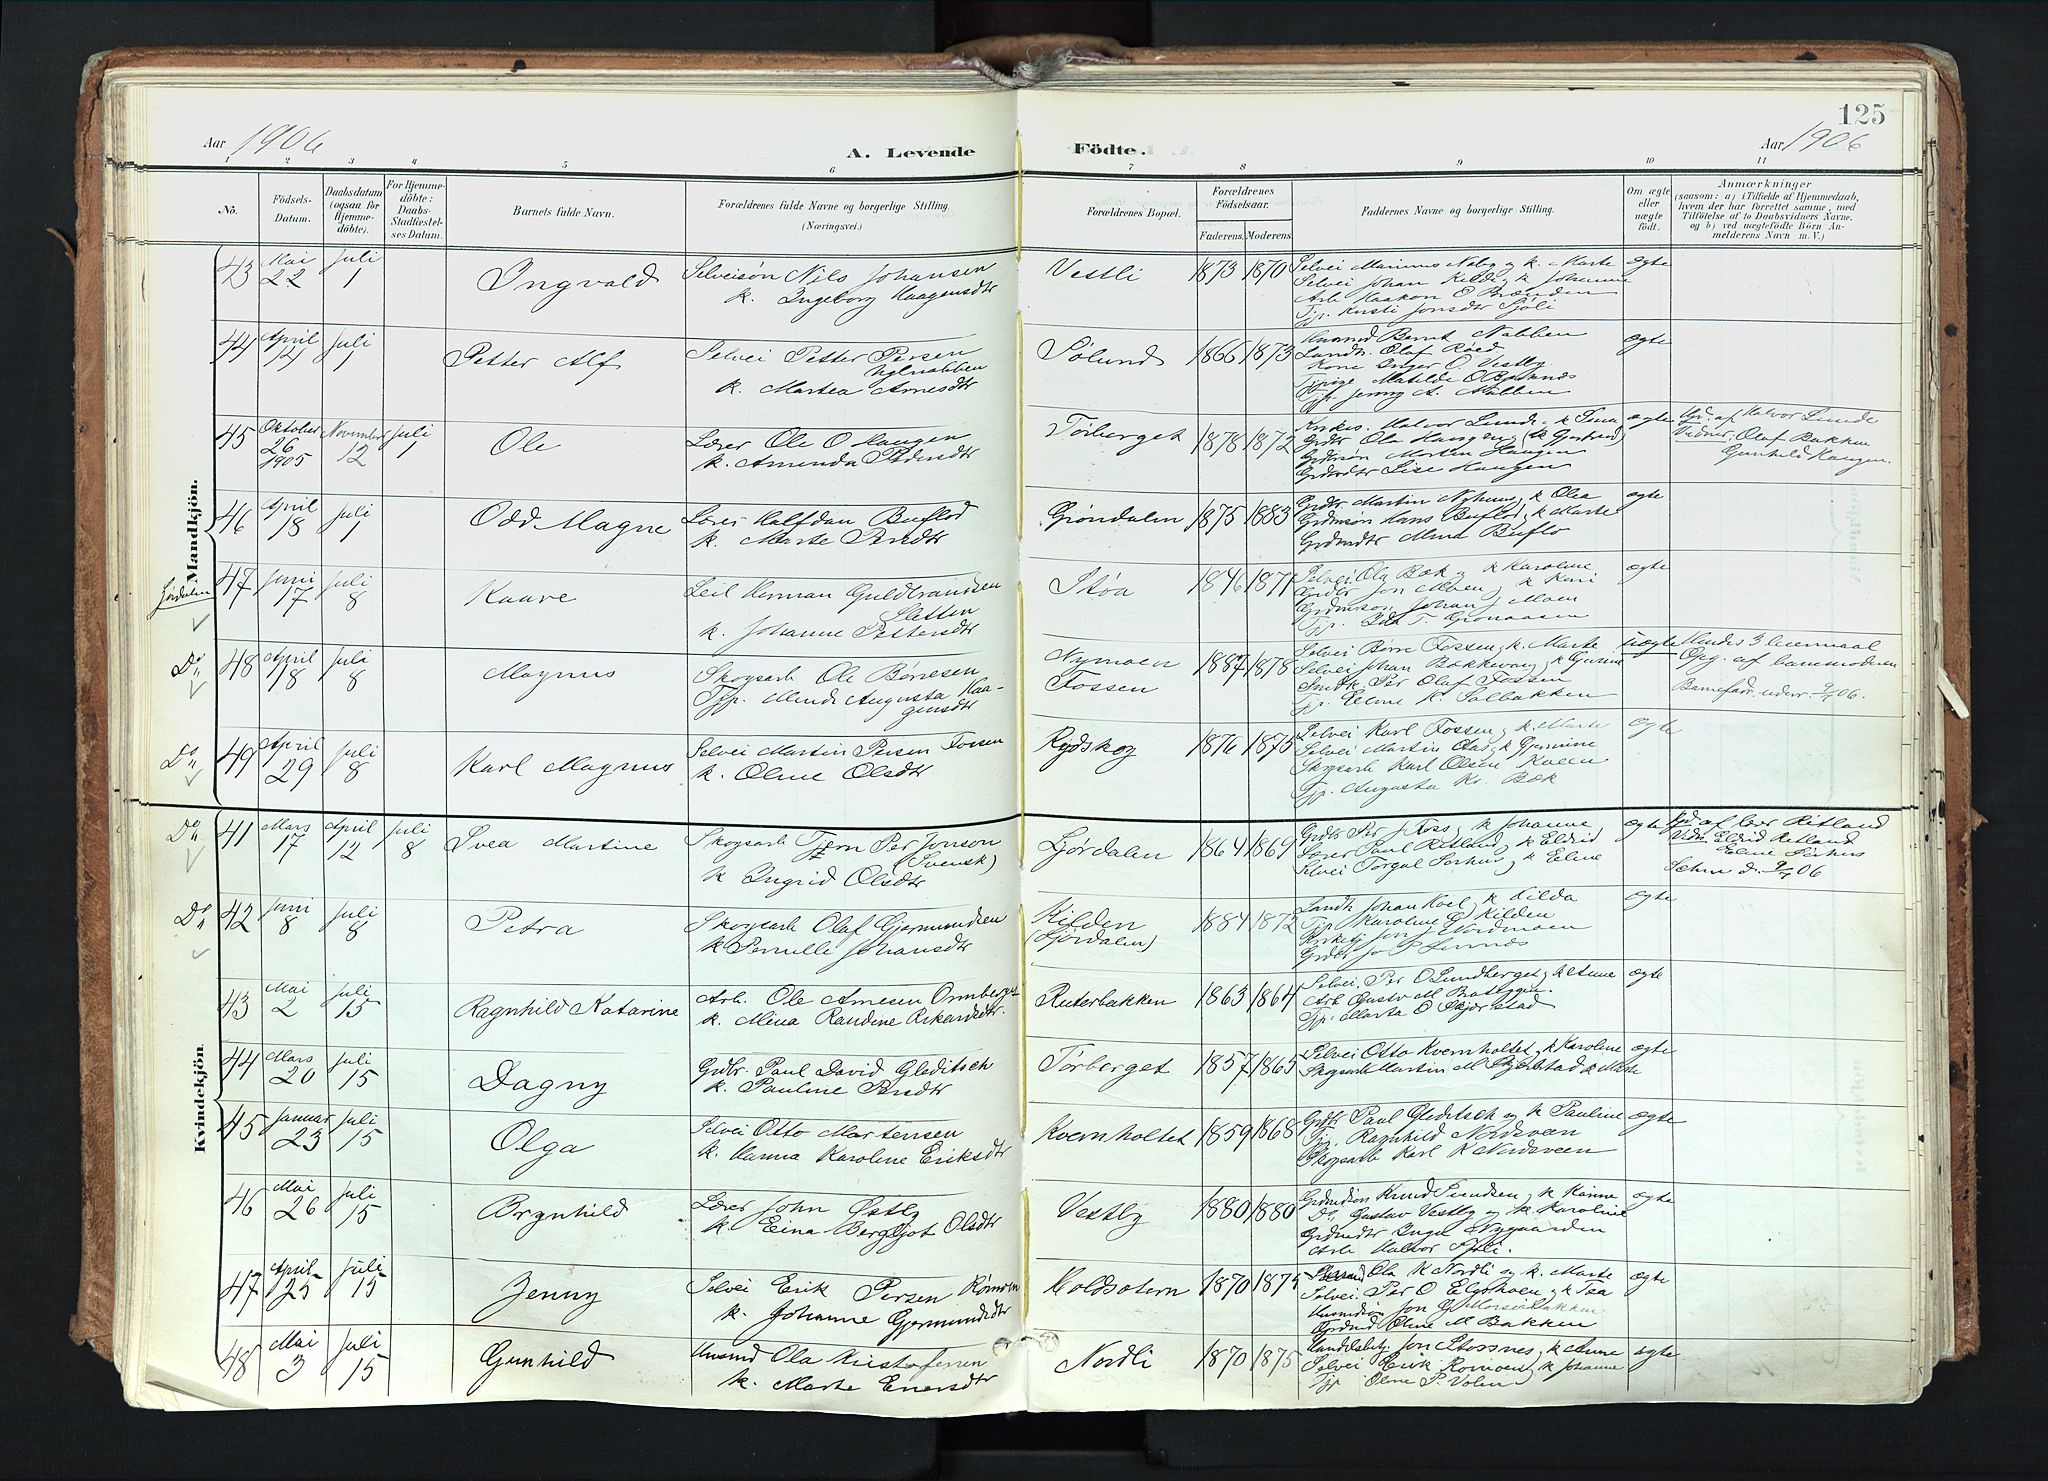 125
Aar 1906
A. Levende
Födte.
Aar 1906
1 2 3 4 5 6 7 8 9 10 11
No.
Födsels-Datum.
Daabsdatum (ogsaa for Hjemme-döbte).
For Hjemme-döbte: Daabs-Stadfæstel-ses Datum.
Barnets fulde Navn.
Forældrenes fulde Navne og borgerlige Stilling.
(Næringsvei.)
Forældrenes Bopæl.
Forældrenes Födselsaar.
Faderens. Moderens.
Faddernes Navne og borgerlige Stilling.
Om ægte eller uægte födt.
Anmærkninger
(saasom: a) i Tilfælde af Hjemmedaab, hvem der har forrettet samme, med Tilföielse af to Daabsvidners Navne, og b) ved uægtefödte Börn An-melderens Navn m. V.)
Mandkjön.
43 Mai 22 Juli 1 Ingvald
Selveisøn Nils Johansen
k. Ingeborg Haagensdtr
Vestli 1873 1870
Selvei Marinus Naby og k. Marte
Selvei Johan Kildi, k Johanne
Arb. Haakon O Brænden
Tjp. Kristi Jonsdtr Sjøli
ægte
44 April 14 Juli 1 Petter Alf
Selvei Petter Persen
k. Martea Arnesdtr
Sølund 1866 1873
Husmd Bernt Nabben
Landh. Olaf Røed
Kone Inger O. Vestby
Tjpige Matilde O
Tjp. Jenny A. Nabben
ægte
45 Oktober 26 1905 November 12 Juli 1 Ole
Lærer Ole O Haugen
k. Amenda Pedersdtr
Tørberget 1878 1872
Kirkes. Halvor Lunde, k Tena
Grdbr Ola Haugen, (k Gjertrud)
Grdmsøn Morten Haugen
Grdmdtr Lise Haugen
ægte
Hjd. af Halvor Lunde
Vidner: Olaf Bakken
Gunhild Haugen.
46 April 18 Juli 1 Odd Magne
Lærer Halfdan Buflod
k. Marte Persdtr
Grøndalen 1875 1883
Grdbr. Martin Nyhuus, k Olea
Grdmsøn Hans Buflod, k Marte
Grdmdtr Mina Buflo
ægte
Lørdalen
47 Juni 17 Juli 8 Kaare
Leil Herman Guldbrandsen
Sletten
k. Johanne Pettersdtr
Støa 1846 1871
Selvei. Ola Bæk og k Karoline
Grdbr Jon Moen, k Kari
Grdmsøn Johan J Moen
Tjp. Ida T. Grønaasen
ægte
Do
48 April 18 Juli 8 Magnus
Skogsarb Ole Børresen
Tjp. Minda Augusta Haa-
gensdtr
Nymoen
Fossen
1887 1878
Selvei Børre Fossen, k. Marte
Selvei Johan Bakkevang, k Gunine
Smedk Per Olaf Fossen
Tjp. Eline K. Solbakken
uægte
Hendes 3 leiermaal
Opg. af barnemoderen
Barnefar. underr. 9/7 06.
Do
49 April 29 Juli 8 Karl Magnus
Selvei Martin Persen Fossen
k. Oline Olsdtr
Rydskog 1876 1875
Selvei Karl Fossen, k. Marte
Selvei Martin Olss, k Gjermine
Skogsarb Karl Olsen Kveen
Tjp. Augusta Kr. Bæk
ægte
Kvindekjön
Do
41 Mars 17 April 12 Juli 8 Svea Martine
Skogsarb Tjern Per Jonson
(Svensk)
k Ingrid Olsdtr
Ljørdalen 1864 1869
Grdbr Per J Foss, k Johanne
Lærer Paul Ritland, k Eldrid
Selvei Torgal Sirhus, k Eline
ægte
Hjd af lær Ritland
Vidn Eldrid Ritland
Eline Sirhus
Sehm d. 9/7 06
Do
42 Juni 8 Juli 8 Petra
Skogsarb Olaf Gjermundsen
k Pernille Johansdtr
Kilden
(Ljørdalen)
1884 1872
Landh Johan Hoel, k Hilda
Tjp Karoline E Kilden
Kirkeg Jon J Nordmoen
Grdbr Jo P Linnæs
ægte
43 Mai 2 Juli 15 Ragnhild Katarine
Arb. Ole Arnesen Ornberget
k. Mina Randine Rikardsdtr.
Ruterbakken 1863 1864
Selvei. Per O Lundberget, k Anne
Arb Gustav M Bateggen
Tjp. Marta O Skjærstad
ægte
44 Mars 20 Juli 15 Dagny
Grdbr. Paul David Gleditsch
k. Pauline Persdtr
Tørberget 1857 1865
Selvei Otto Kvernholtet, k Karoline
Skogsarb Martin M Bjørlstad k Marte
ægte
45 Januar 23 Juli 15 Olga
Selvei Otto Martensen
k. Hanna Karoline Eriksdtr
Kvernholtet 1859 1868
Grdbr Paul Gleditsch og k Pauline
Tjp. Ragnhild Nordsveen
Skogsarb Karl K Nordsveen
ægte
46 Mai 26 Juli 15 Brynhild
Lærer John Østby
k Eina Bergljot Olsdtr
Vestby 1880 1880
Grdmdsøn Knud Knudsen, k Hanne
Do. Gustav Vestby og k Karoline
Grdmdtr Inga Nygaarden
Arb Halvor Sjøli.
ægte
47 April 25 Juli 15 Jenny
Selvei Erik Persen Rømoen
k. Johanne Gjermundsdtr
Holdsætern 1870 1875
Ola K Nordli og k. Marte
Selvei Per O Elgshoen, k Tea
Husmdsøn Jon G. Morset bakken
Oline M Bakken
ægte
48 Mai 3 Juli 15 Gunhild
Husmd Ola Kristofersen
k. Marte Enersdtr
Nordli 1870 1875
Handelsbetj Jon Storsnes, k Anne
Selvei Erik Romoen, k Johanne
Tjp Oline P. Volen
ægte